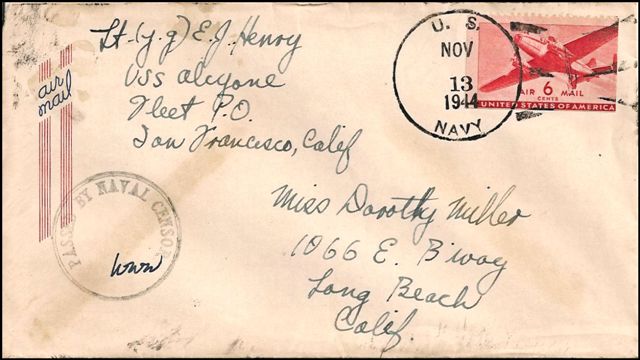 Lt. (j.g) E.J. Henry
USS Alcyone
Fleet P.O.
San Francisco, Calif
air
mail
U. S.
NOV
13
1944
NAVY
AIR 6 MAIL
CENTS
UNITED STATES OF AMERICA
PASSED BY NAVAL CENSOR
Miss Dorothy Miller
1066 E. B'way
Long Beach
Calif.